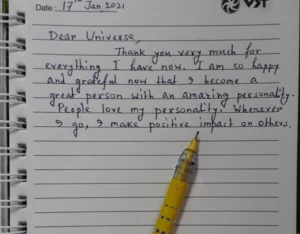 Date: 17th Jan 2021
VST
Dear Universe,
Thank you very much for
everything I have now. I am so happy
and grateful now that I become a
great person with an amazing personality.
People love my personality. Whenever
I go, I make positive impact on others.